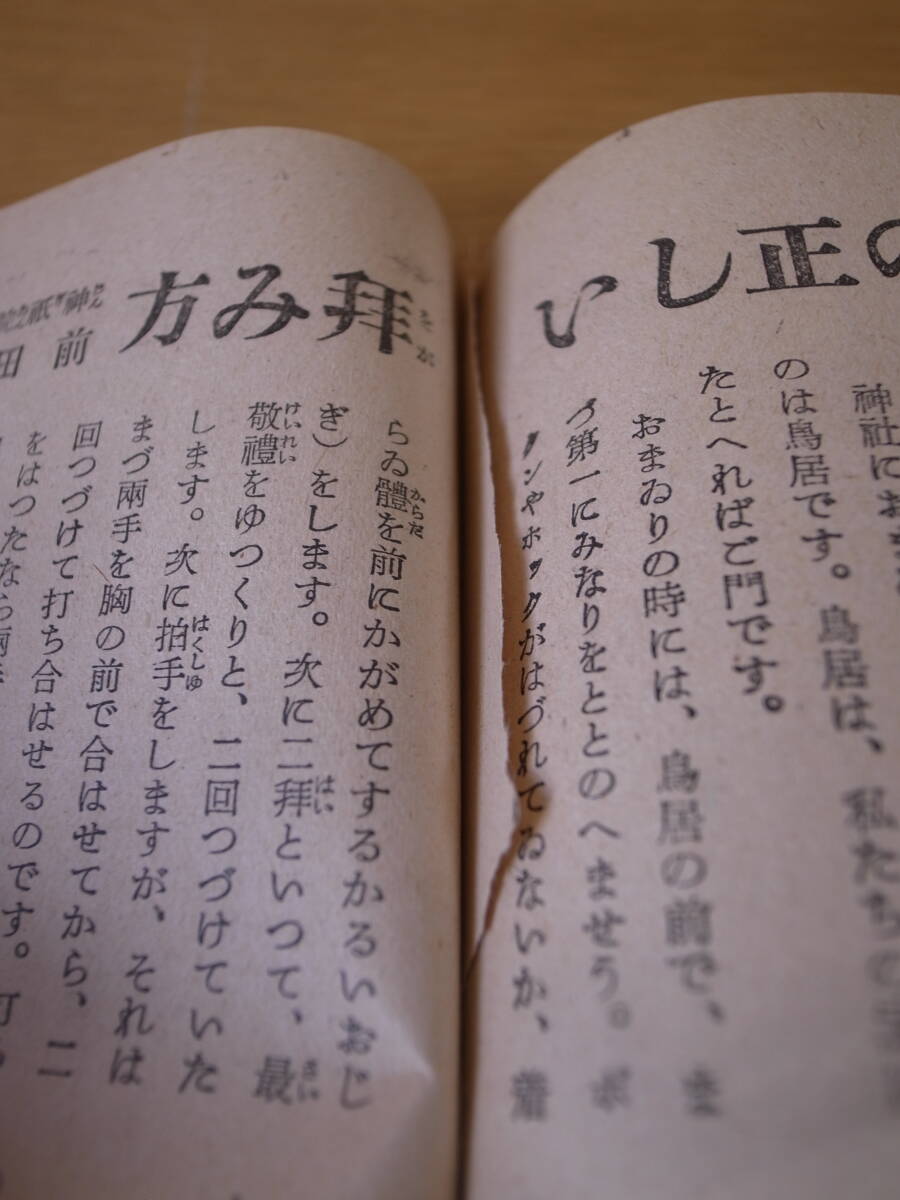 の正しい
神社にお
のは鳥居です。鳥居は、私たちの
たとへればご門です。
おまゐりの時には、鳥居の前で、ま
づ第一にみなりをととのへませう。ボ
タンやホックがはづれてゐないか、着
拝み方
神祇
前田
らゐ體を前にかがめてするかるいおじ
ぎ）をします。次に二拝といつて、最
敬禮をゆつくりと、二回つづけていた
します。次に拍手をしますが、それは
まづ兩手を胸の前で合はせてから、二
回つづけて打ち合はせるのです。打
をはつたなら兩手